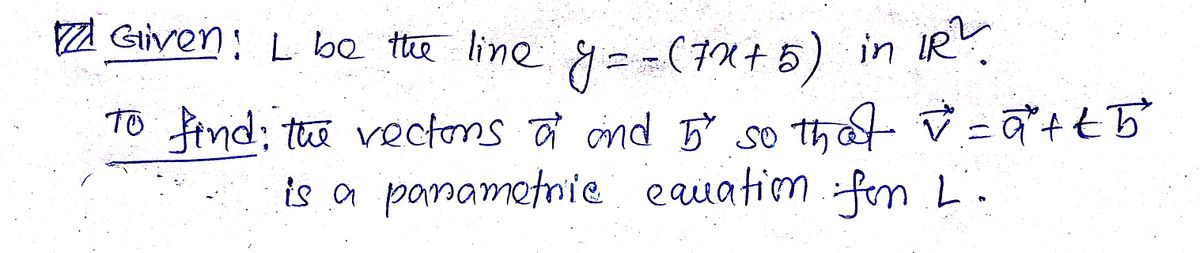 Given: L be the line y = -(7x+5) in ℝ².
To find: the vectors a⃗ and b⃗ so that v⃗ = a⃗ + t b⃗
is a parametric equation for L.